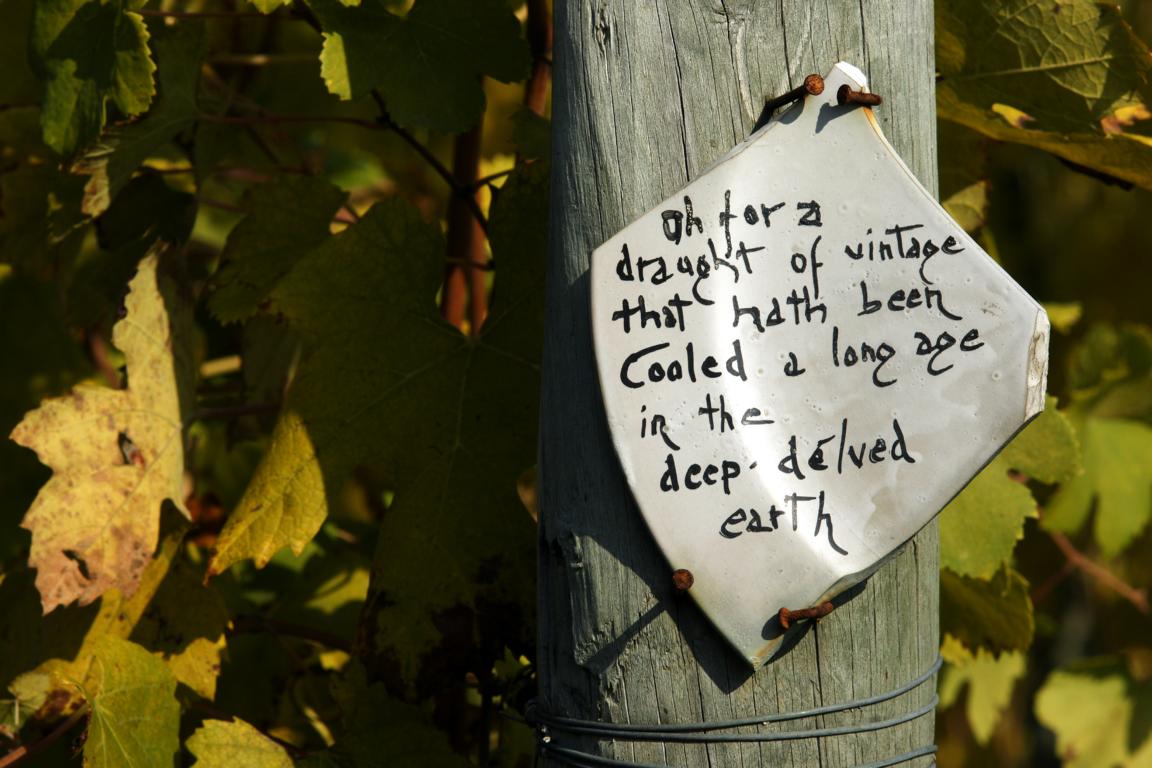 oh for a
draught of vintage
that hath been
Cooled a long age
in the
deep-delved
earth